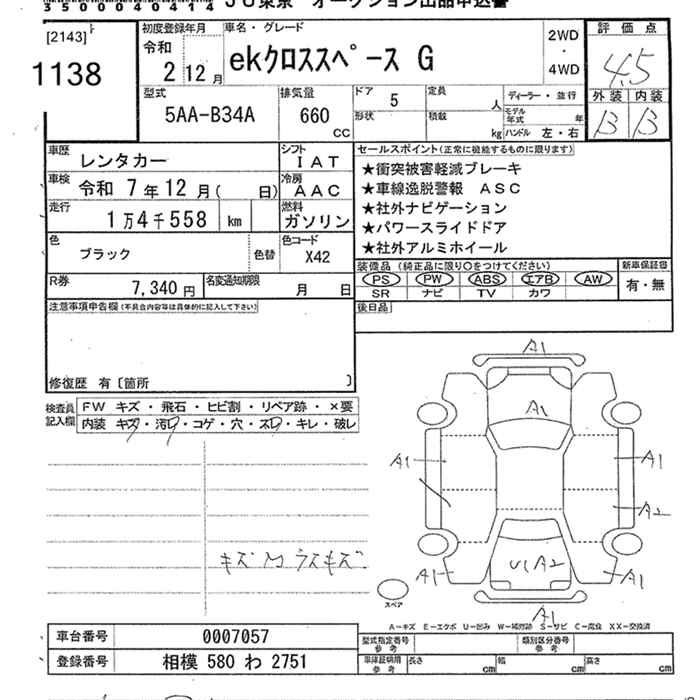 35000040414 JU東京 オークション出品申込書
[2143]
1138
初度登録年月
令和
2 12月
車名・グレード
ekクロススペース G
2WD
・
4WD
評価点
4.5
外装 内装
B B
型式
5AA-B34A
排気量
660
cc
ドア
5
形状
定員
人
積載
kg
ディーラー・並行
モデル年式 年
ハンドル 左・右
車歴
レンタカー
シフト
IAT
車検
令和 7年12月( 日)
冷房
AAC
走行
1万4千558 km
燃料
ガソリン
色
ブラック
色替
色コード
X42
R券
7,340円
名変通知期限
月 日
セールスポイント(正常に機能するものに限ります)
★衝突被害軽減ブレーキ
★車線逸脱警報 ASC
★社外ナビゲーション
★パワースライドドア
★社外アルミホイール
装備品(純正品に限り○をつけてください)
PS PW ABS エアB AW
SR ナビ TV カワ
新車保証書
有・無
後日品
注意事項申告欄(不具合内容等は具体的に記入して下さい)
修復歴 有〔箇所 〕
検査員記入欄
FW キズ・飛石・ヒビ割・リペア跡・×要
内装 キズ・汚レ・コゲ・穴・スレ・キレ・破レ
A1
A1
A1
A1
A2
A1
A1
U1A2
A1
キズ M ラスキズ
スペア
A－キズ E－エクボ U－凹み W－補修跡 S－サビ C－腐食 XX－交換済
車台番号
0007057
登録番号
相模 580 わ 2751
型式指定番号
参考
類別区分番号
参考
車庫証明用
参考
長さ cm
幅 cm
高さ cm